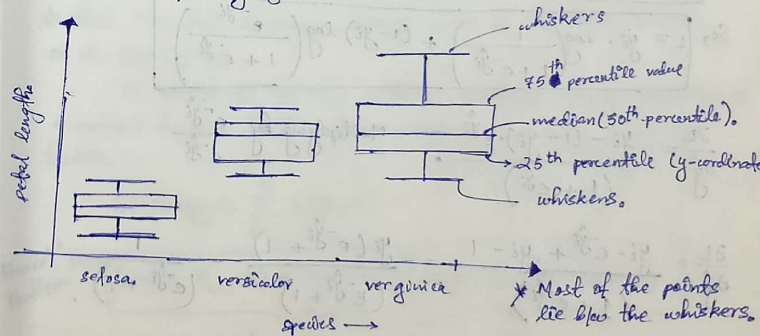 whiskers
75th percentile value
median (50th percentile).
25th percentile (y-cordinate
whiskers.
petal length.
setosa. versicolor verginica
species →
* Most of the points
lie b/w the whiskers.